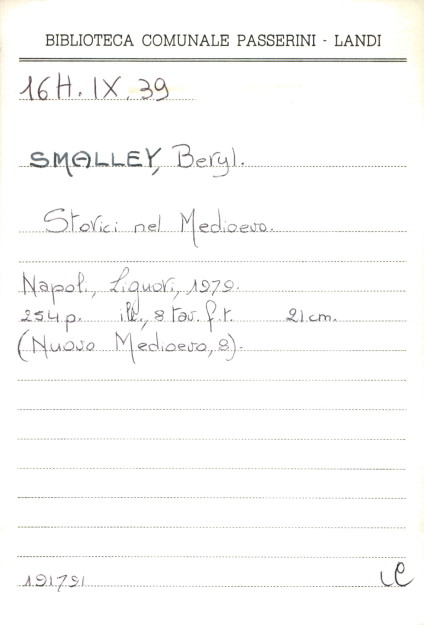 BIBLIOTECA COMUNALE PASSERINI - LANDI
16H. IX. 39
SMALLEY, Beryl.
Storici nel Medioevo.
Napoli, Liguori, 1979.
254 p. ill., 8 tav. f.t. 21 cm.
(Nuovo Medioevo, 8).
191791